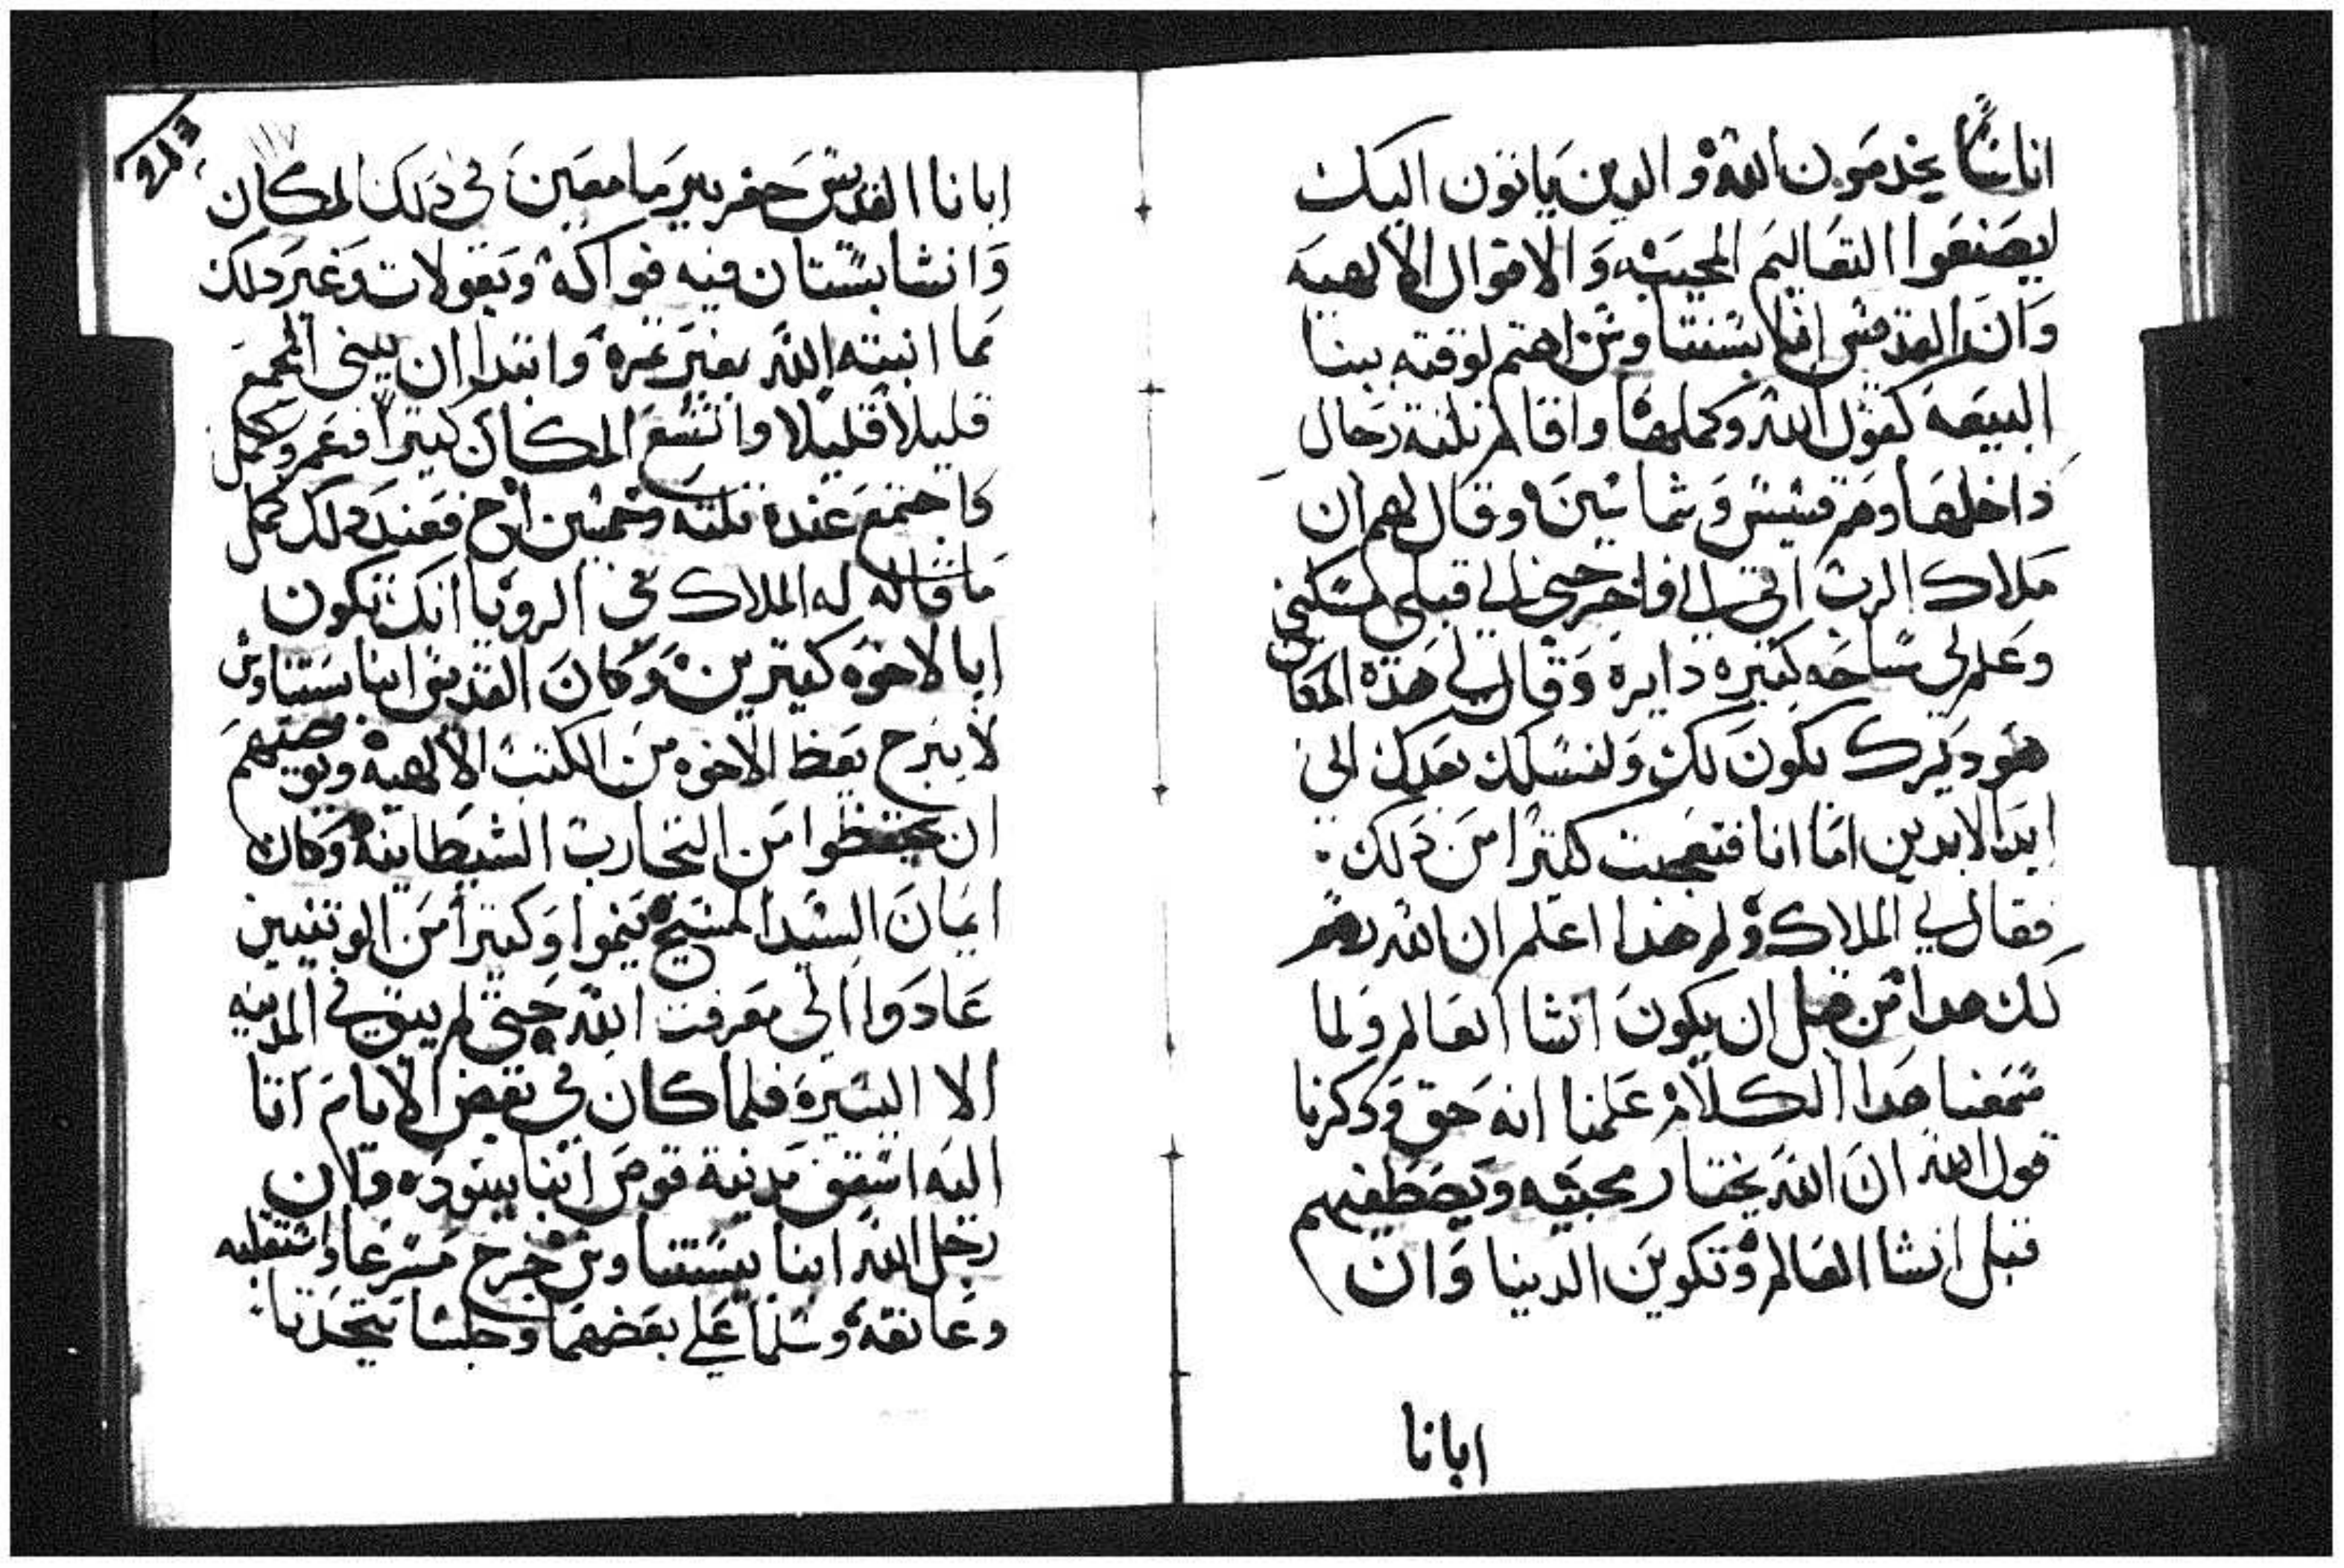 اناسًا يخدمون الله والدين ياتون اليك
ليصنعوا التعاليم المحييه والاقوال الالهيه
وان القديس انبا بسنتاوس اهتم لوقته ببنا
البيعه كقول الله وكملها واقام تلته رجال
داخلها وهم قسيس وشماسين وقال لهم ان
ملاك الرب اتى الي فاخرجني الي قبلي مسكني
وعلم لي ساحه كبيره دايره وقال لي هذه المكان
هو ديرك يكون لك ولنسلك بعدك الى
ابد الابدين اما انا فتعجبت كتيرا من دلك
فقال لي الملاك ولم هذا اعلم ان الله رسم
لك هدا من قبل ان يكون انشا العالم ولما
سمعنا هدا الكلام علمنا انه حق ودكرنا
قول الله ان الله يختار محبيه ويصطفيهم
قبل انشا العالم وتكوين الدنيا وان
ابانا
ابانا القديس حفر بير ما معين في دلك المكان
وانشا بستان فيه فواكه وبقولات وغير دلك
مما انبته الله بغير غره وابتدا ان يبني المجمع
قليلا قليلا واتسع المكان كتيرا فعمر وكمل
واجتمع عنده تلته وخمسين اخ فعند دلك كمل
ما قاله له الملاك في الرويا انك تكون
ابا لاخوه كتيرين وكان القديس انبا بستناوس
لا يبرح يعظ الاخوه من الكتب الالهيه ويوصيهم
ان يحتفظوا من التجارب الشيطانيه وكان
ايمان السيد المسيح ينموا وكتيرا من الوتنيين
عادوا الى معرفت الله حتى لم يبق في المدينه
الا اليسيره فلما كان في بعض الايام اتا
اليه اسقف مدينة قوص انبا بيسوده وان
رجل الله انبا بيستناوس خرج مسرعا واستقبله
وعانقه وسلما على بعضهما وجلسا يتحدتا